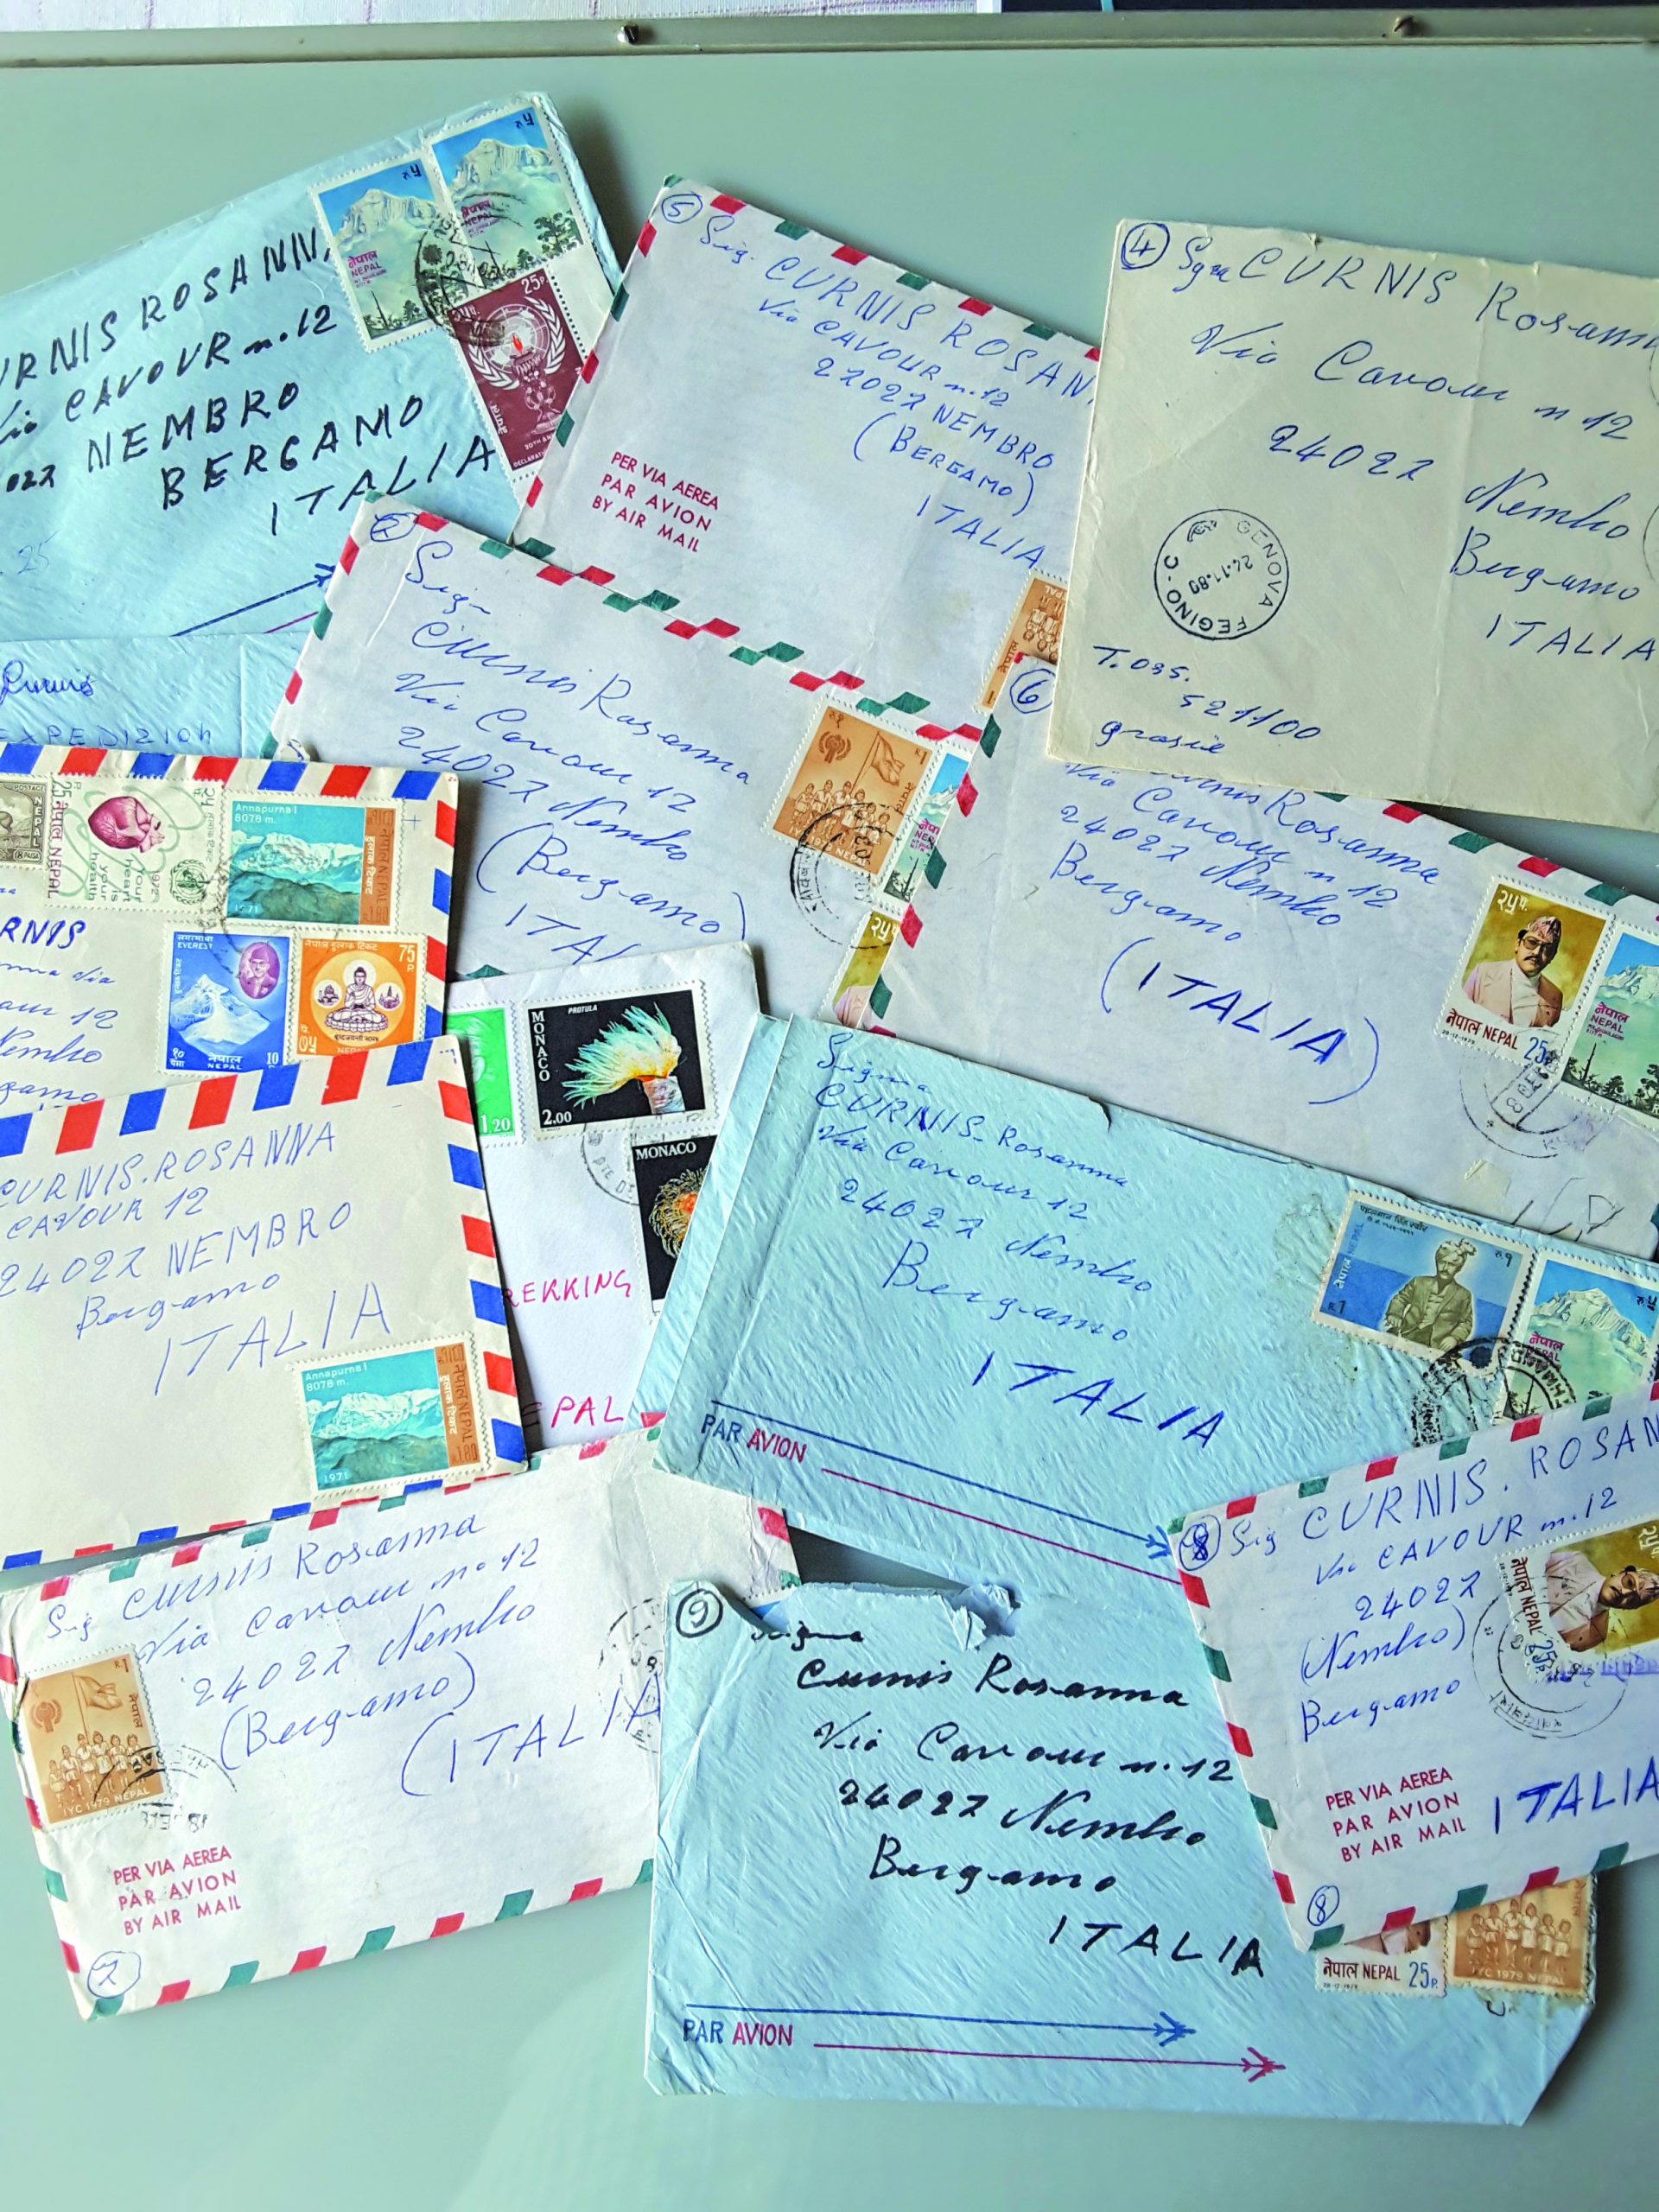 ROSANN
CAVOUR n. 12
NEMBRO
BERGAMO
ITALIA
25
रु ५
नेपाल
NEPAL
रु ५
नेपाल
NEPAL
25P
5
Sig. CURNIS ROSAN
Via CAVOUR n. 12
24027 NEMBRO
(BERGAMO)
ITALIA
PER VIA AEREA
PAR AVION
BY AIR MAIL
नेपाल
4
Sgra CURNIS Rosanna
Via Cavour n 12
24027 Nembro
Bergamo
ITALIA
GENOVA FEGINO-C
24.11.80
T. 035.
521100
grazie
Curnis
Sig.
Curnis Rosanna
Via Cavour 12
24027 Nembro
(Bergamo)
ITAL
6
Curnis Rosanna
Via Cavour n 12
24027 Nembro
Bergamo
(ITALIA)
२५ प.
नेपाल NEPAL 25P.
नेपाल
NEPAL
POSTAGE
NEPAL
25P
नेपाल NEPAL
Your
heart
is
your
health
1972
Annapurna I
8078 m.
1971
नेपाल NEPAL
सगरमाथा
EVEREST
१०
पैसा
नेपाल
NEPAL
10
नेपाल हुलाक टिकट
75
P
RNIS
Via
12
Nembro
CURNIS. ROSANNA
CAVOUR 12
24027 NEMBRO
Bergamo
ITALIA
Annapurna I
8078 m.
1971
नेपाल NEPAL
1.80
1,20
MONACO
PROTULA
2.00
MONACO
REKKING
PAL
Signa
CURNIS. Rosanna
Via Cavour 12
24027 Nembro
Bergamo
ITALIA
PAR AVION
नेपाल NEPAL
रु. १
R.1
रु ५
नेपाल
NEPAL
Sig Curnis Rosanna
Via Cavour no 12
24027 Nembro
(Bergamo)
(ITALIA
नेपाल
IYC 1979 NEPAL
PER VIA AEREA
PAR AVION
BY AIR MAIL
7
9
Signa
Curnis Rosanna
Via Cavour n. 12
24027 Nembro
Bergamo
ITALIA
PAR AVION
8
Sig CURNIS. ROSAN
Via CAVOUR n. 12
24027
(Nembro)
Bergamo
ITALIA
नेपाल NEPAL 25P.
PER VIA AEREA
PAR AVION
BY AIR MAIL
8
नेपाल NEPAL 25P.
IYC 1979 NEPAL